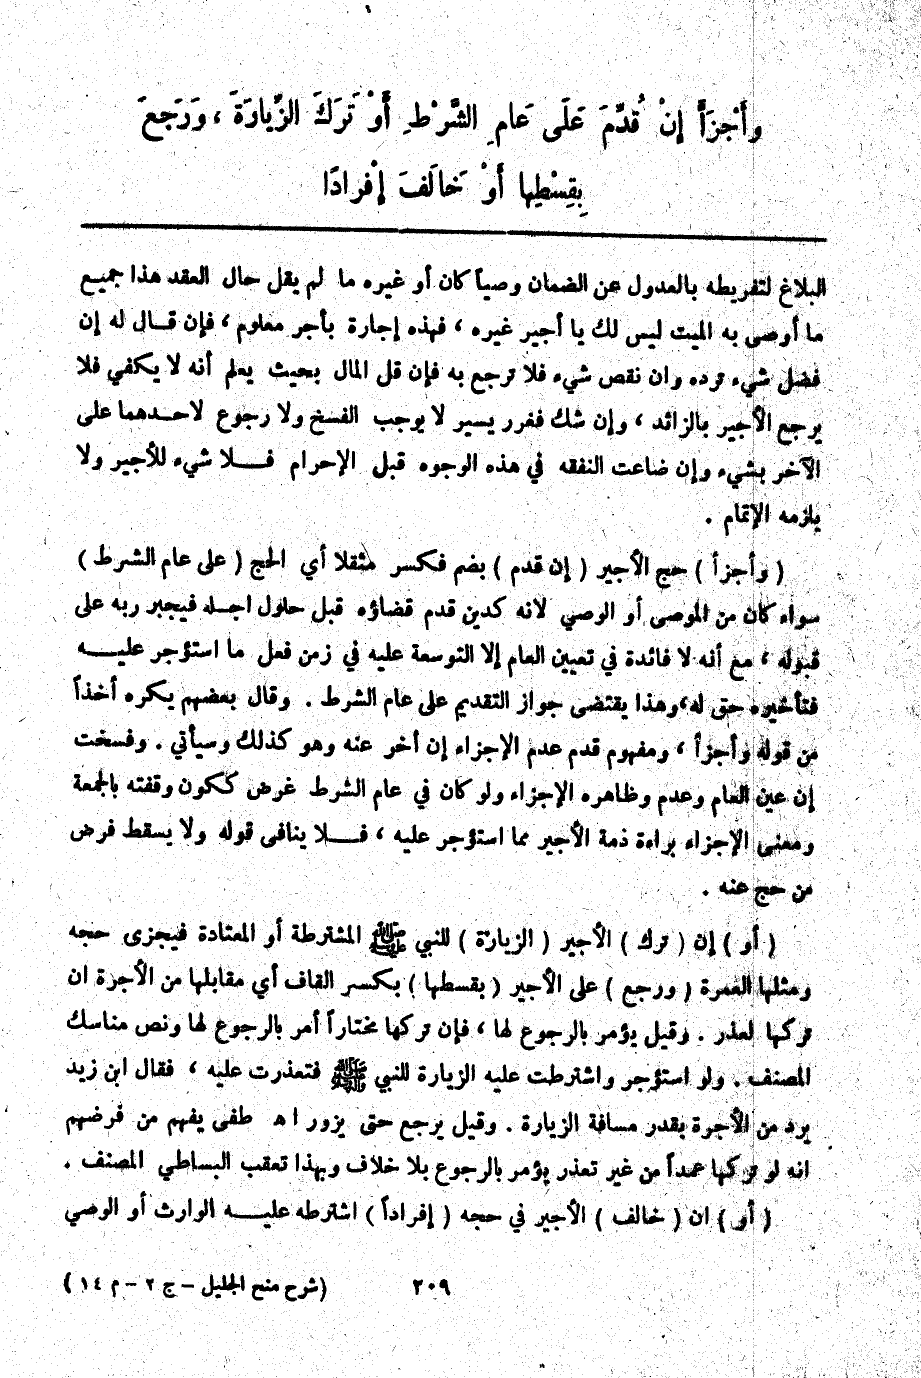 وَأَجْزَأَ إِنْ قُدِّمَ عَلَى عَامِ الشَّرْطِ أَوْ تَرَكَ الزِّيَارَةَ ، وَرَجَعَ
بِقِسْطِها أَوْ خَالَفَ إِفْرادًا
البلاغ لتفريطه بالعدول عن الضمان وصياً كان أو غيره ما لم يقل حال العقد هذا جميع
ما أوصى به الميت ليس لك يا أجير غيره ، فهذه إجارة بأجر معلوم ، فإن قال له إن
فضل شيء ترده وان نقص شيء فلا ترجع به فإن قل المال بحيث يعلم أنه لا يكفي فلا
يرجع الأجير بالزائد ، وإن شك فغرر يسير لا يوجب الفسخ ولا رجوع لاحدهما على
الآخر بشيء وإن ضاعت النفقه في هذه الوجوه قبل الإحرام فلا شيء للأجير ولا
يلزمه الإتمام .
( وأجزأ ) حج الأجير ( إن قدم ) بضم فكسر مثقلا أي الحج ( على عام الشرط )
سواء كان من الموصى أو الوصي لانه كدين قدم قضاؤه قبل حلول اجله فيجبر ربه على
قبوله ، مع أنه لا فائدة في تعيين العام إلا التوسعة عليه في زمن فعل ما استؤجر عليه
فتأخيره حق له،وهذا يقتضى جواز التقديم على عام الشرط . وقال بعضهم يكره أخذاً
من قوله وأجزأ ، ومفهوم قدم عدم الإجزاء إن أخر عنه وهو كذلك وسيأتي . وفسخت
إن عين العام وعدم وظاهره الإجزاء ولو كان في عام الشرط غرض ككون وقفته بالجمعة
ومعنى الإجزاء براءة ذمة الأجير مما استؤجر عليه ، فلا ينافى قوله ولا يسقط فرض
من حج عنه .
( أو ) إن ( ترك ) الأجير ( الزيارة ) للنبي ﷺ المشترطة أو المعتادة فيجزى حجه
ومثلها العمرة ( ورجع ) على الأجير ( بقسطها ) بكسر القاف أي مقابلها من الأجرة ان
تركها لعذر . وقيل يؤمر بالرجوع لها ، فإن تركها مختاراً أمر بالرجوع لها ونص مناسك
المصنف . ولو استؤجر واشترطت عليه الزيارة للنبي ﷺ فتعذرت عليه ، فقال ابن زيد
يرد من الأجرة بقدر مسافة الزيارة . وقيل يرجع حتى يزور اه طفى يفهم من فرضهم
انه لو تركها عمداً من غير تعذر يؤمر بالرجوع بلا خلاف وبهذا تعقب البساطي المصنف .
( أو ) ان ( خالف ) الأجير في حجه ( إفراداً ) اشترطه عليه الوارث أو الوصي
٢٠٩ (شرح منح الجليل – ج ٢ – م ١٤ )